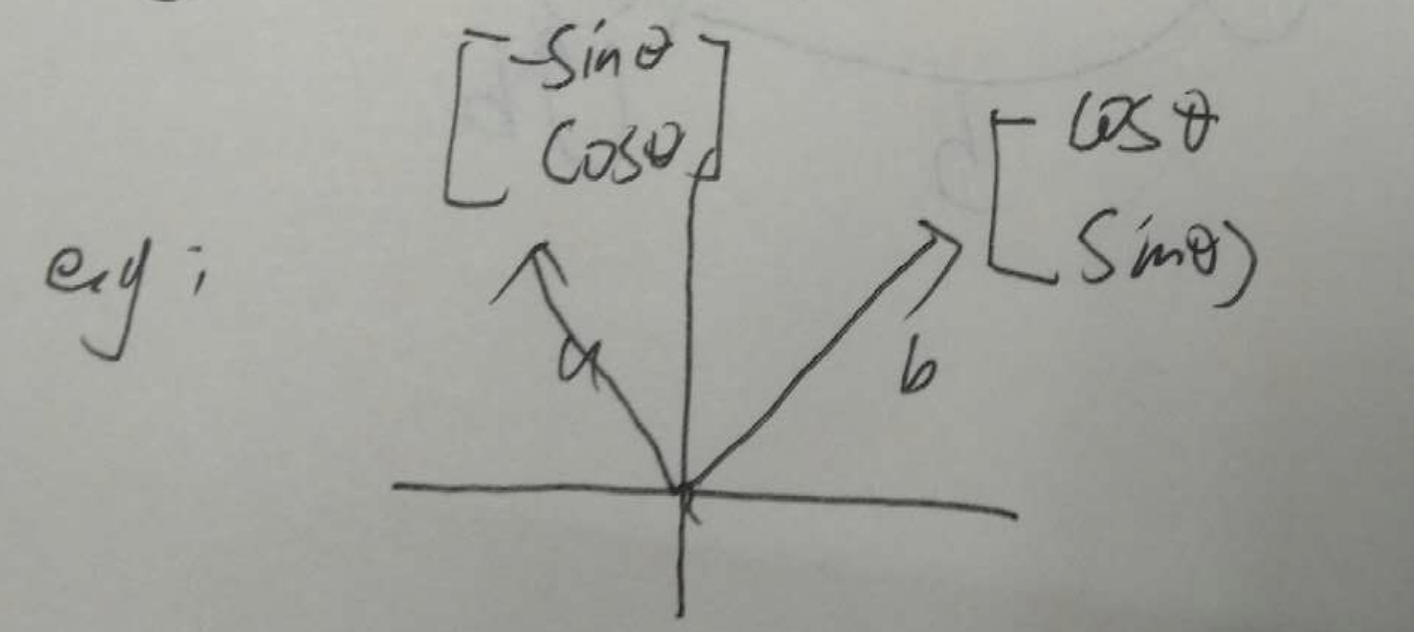 -Sinθ
Cosθ
cosθ
Sinθ
eg:
a
b